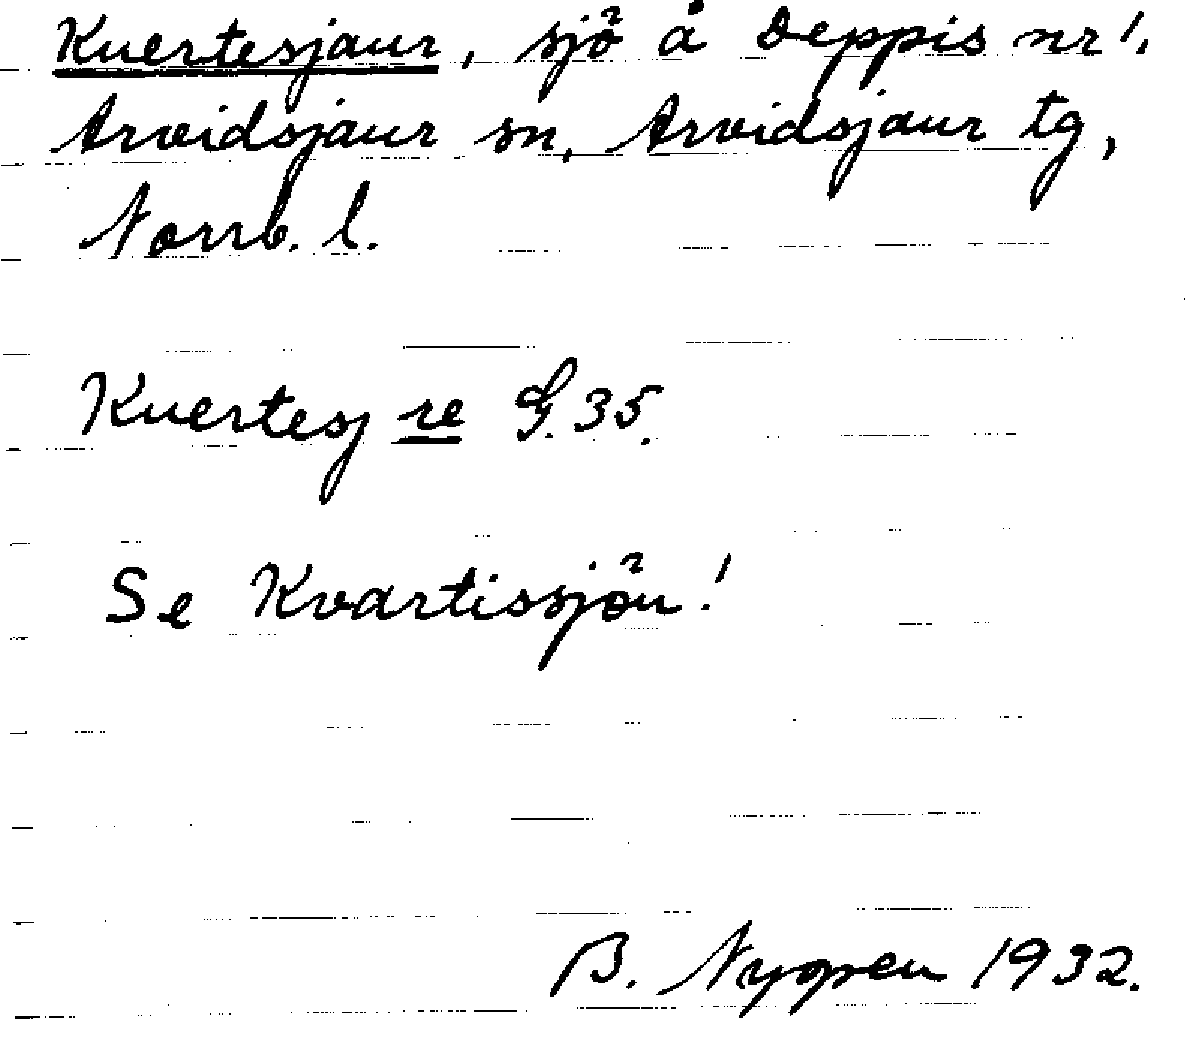 Kuertesjaur, sjö å Deppis nr 1.
Arvidsjaur sn, Arvidsjaur tg,
Norrb. l.
Kuertesj re G. 35.
Se Kvartissjön!
B. Nygren 1932.